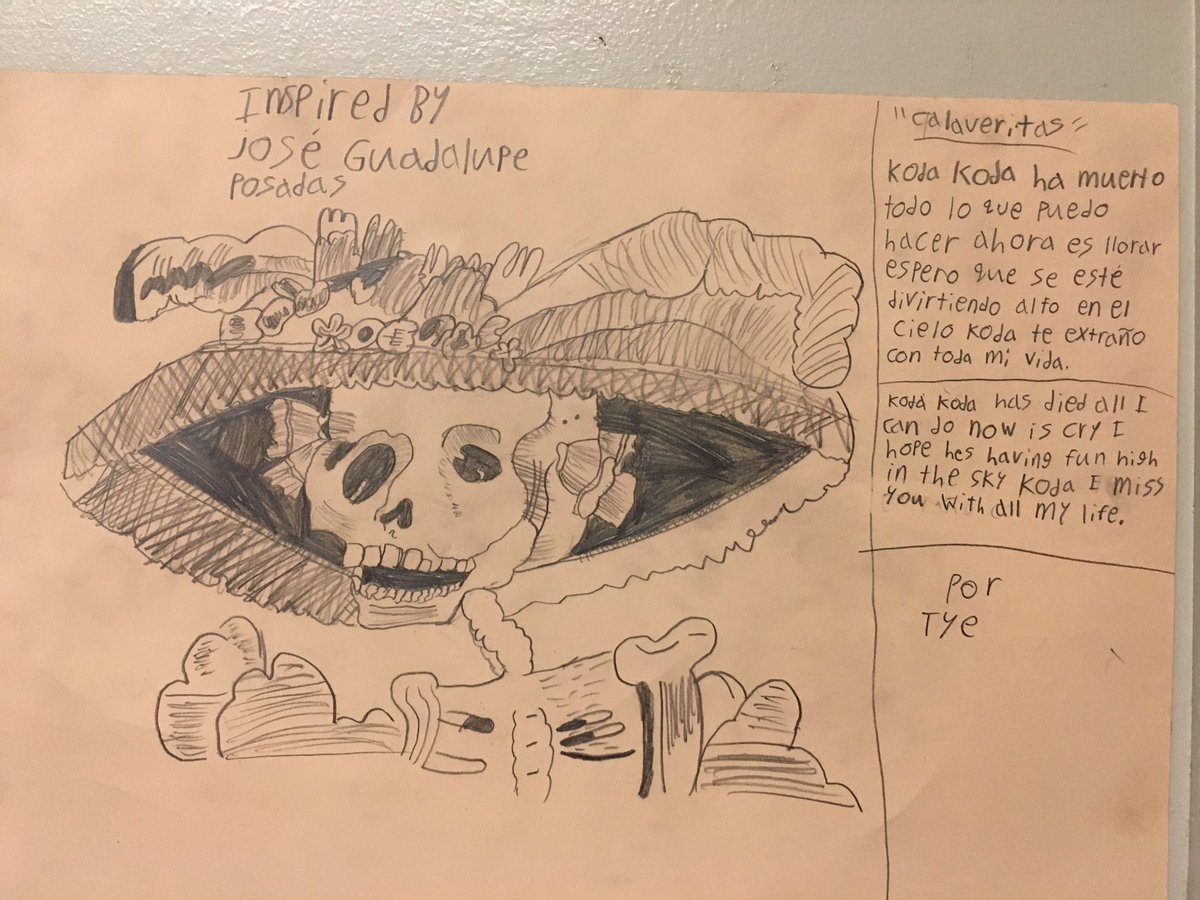 Inspired By
José Guadalupe
Posadas
"Calaveritas"
Koda Koda ha muerto
todo lo que puedo
hacer ahora es llorar
espero que se esté
divirtiendo alto en el
cielo Koda te extraño
con toda mi vida.
Koda Koda has died all I
can do now is cry I
hope hes having fun high
in the sky Koda I miss
you with all my life.
Por
Tye